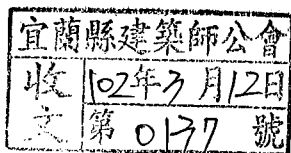 宜蘭縣建築師公會
收文
102年3月12日
第0137號